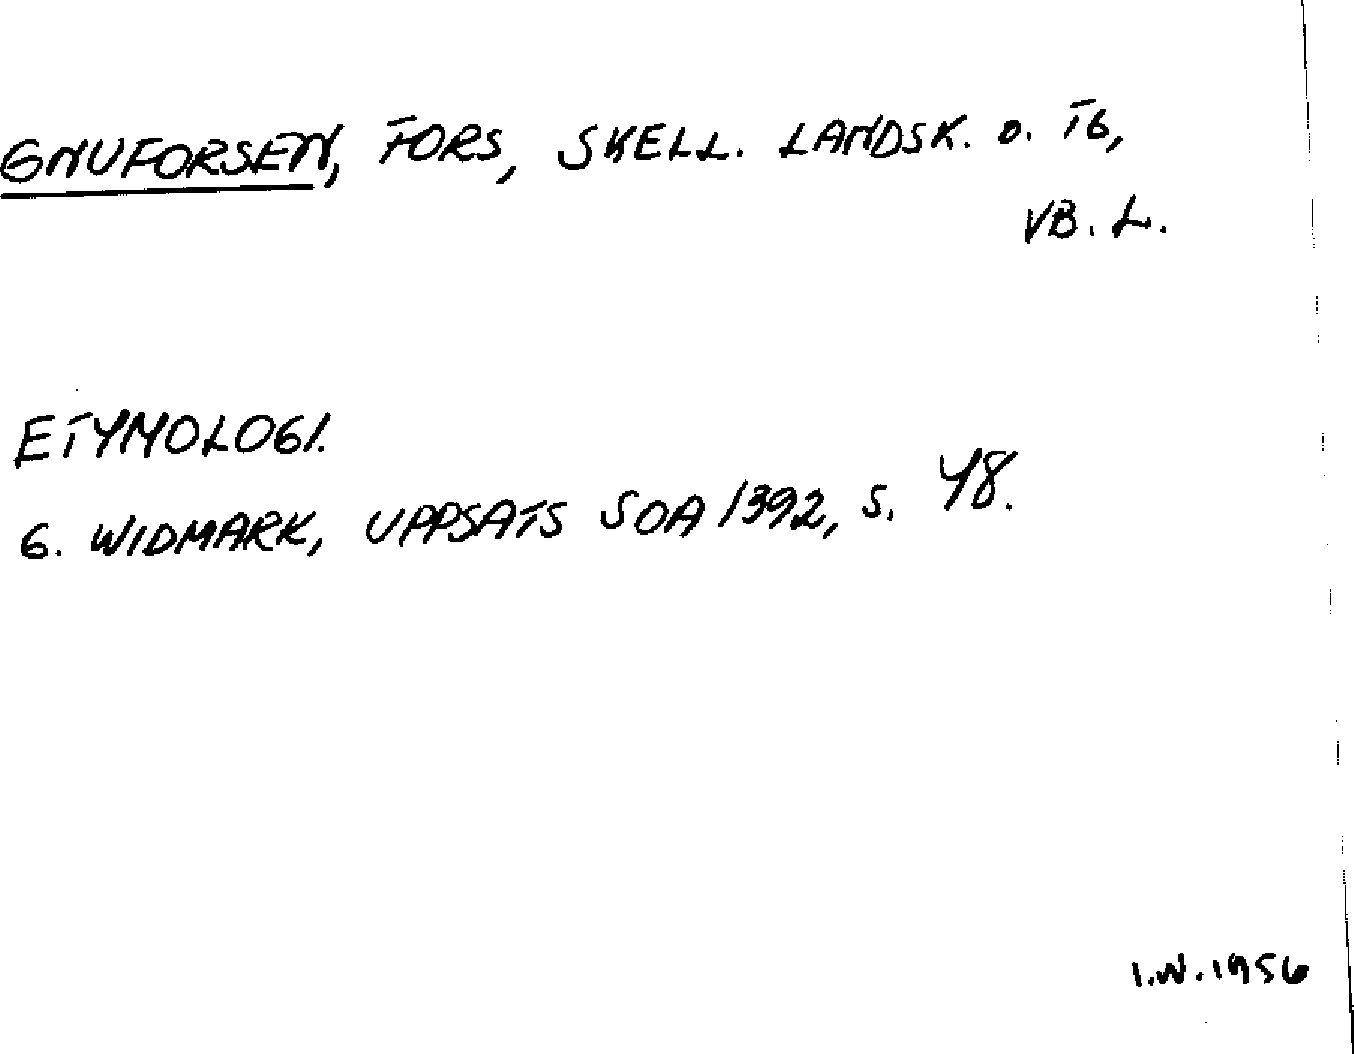 GNUFORSEN, FORS, SKELL. LANDSK. O. TG,
VB. L.
ETYMOLOGI.
G. WIDMARK, UPPSATS SOA 1392, S. 48.
I.W. 1956